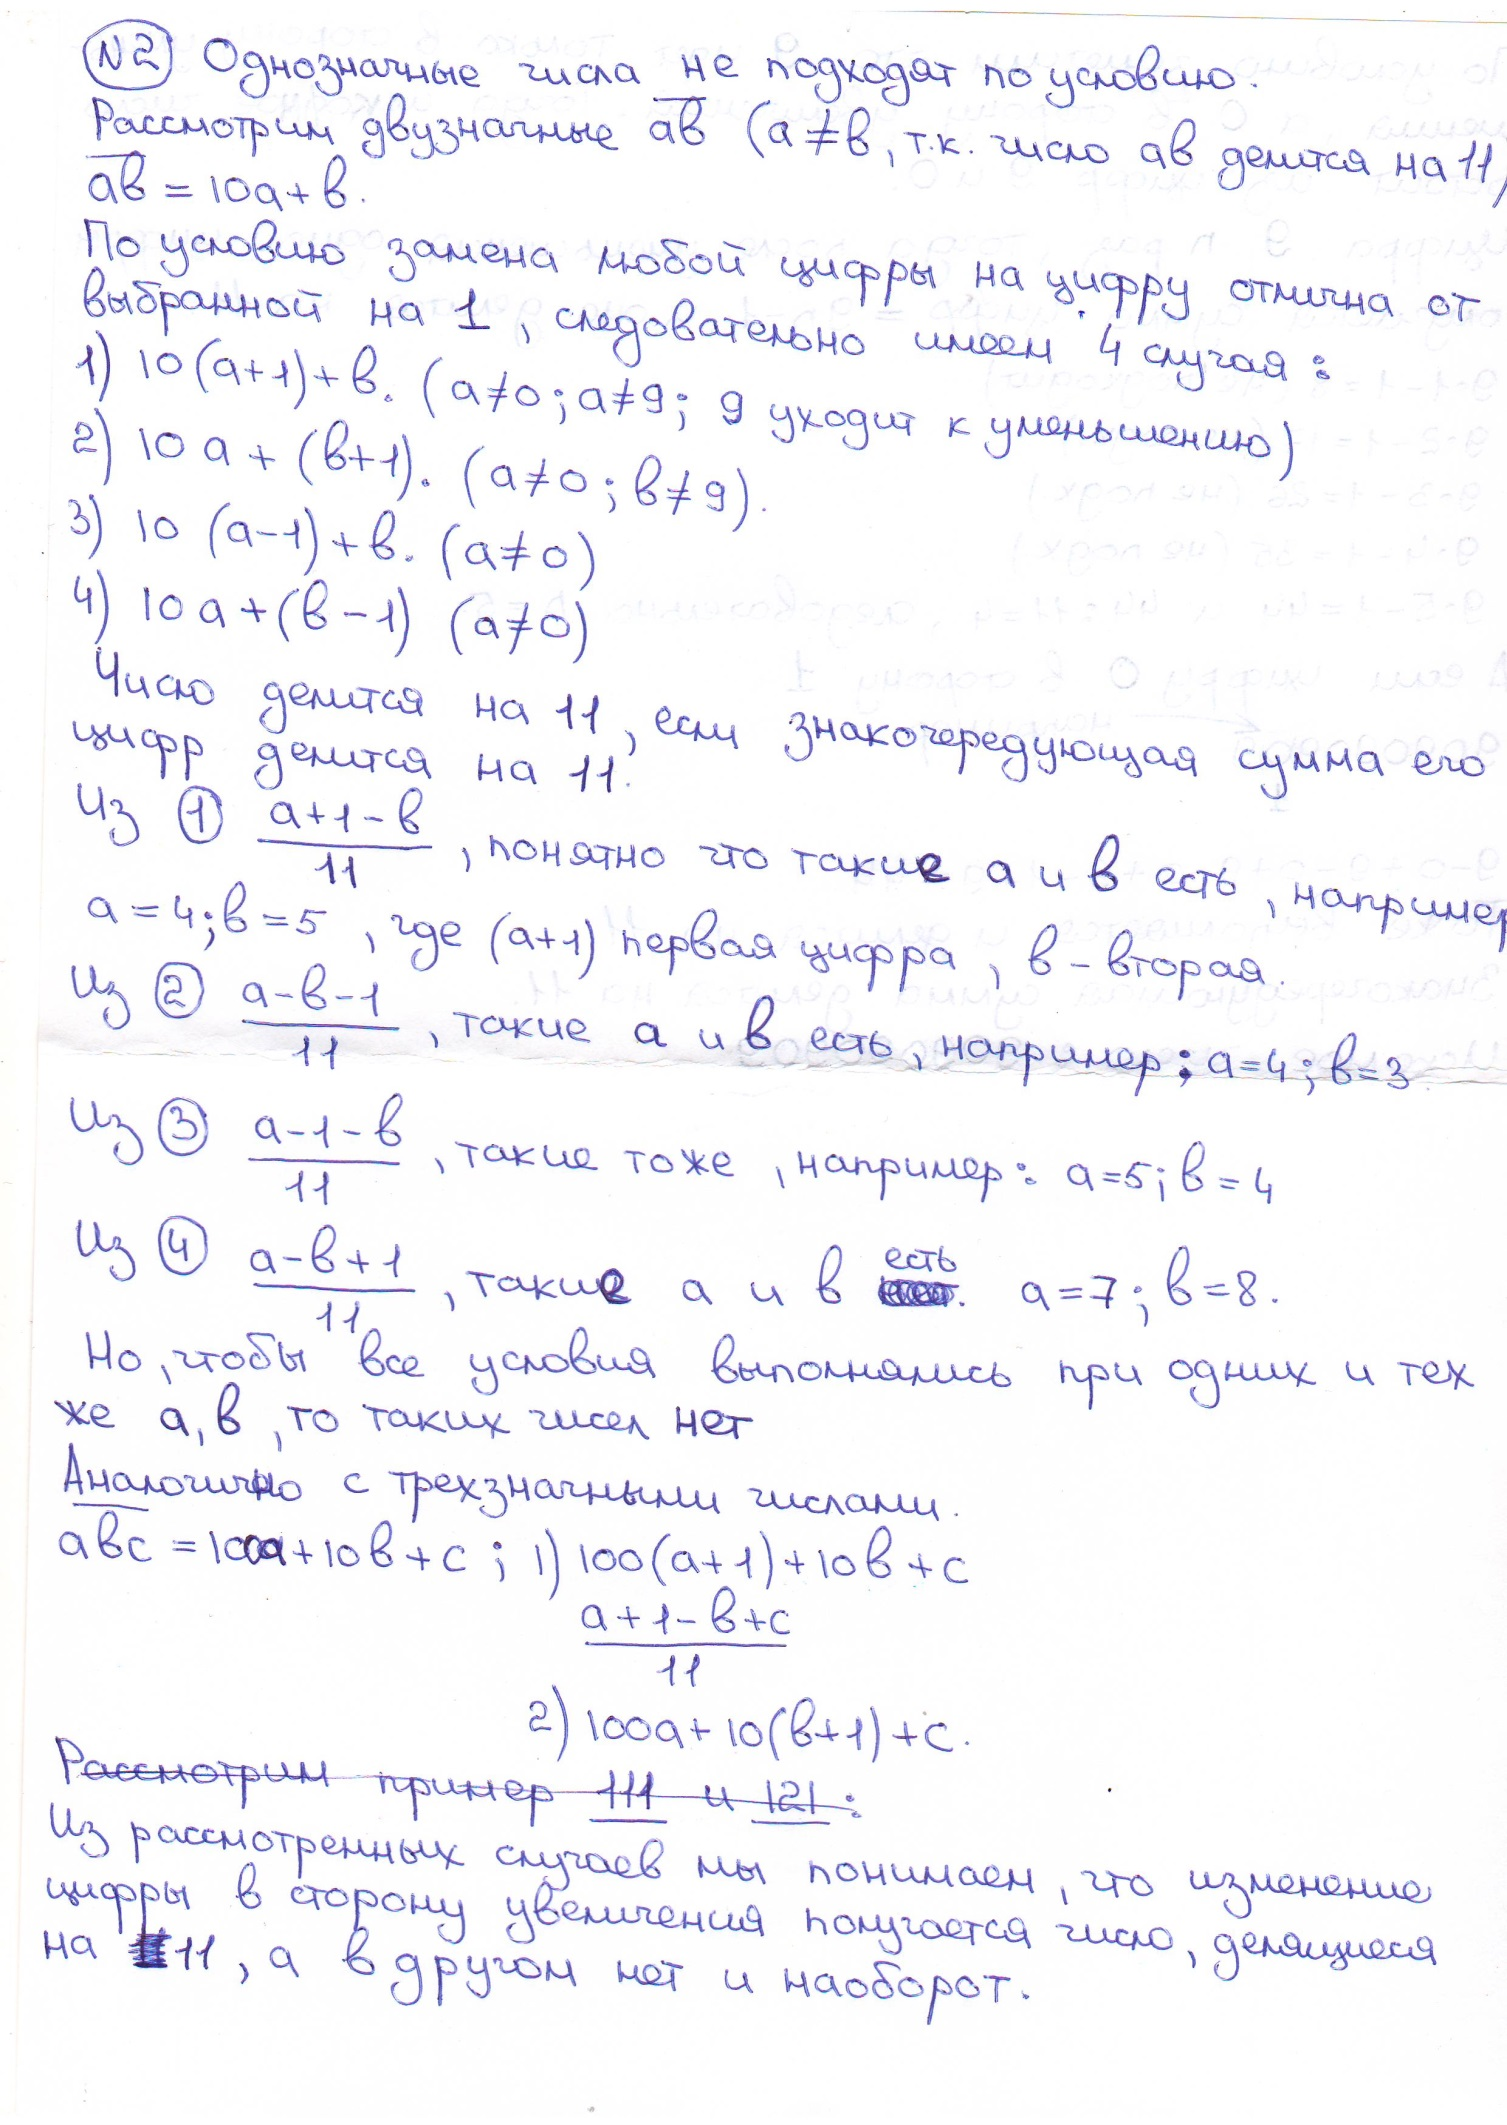 №2 Однозначные числа не подходят по условию.
Рассмотрим двузначные ав (а≠в, т.к. число ав делится на 11)
ав = 10а + в.
По условию замена любой цифры на цифру отлична от
выбранной на 1, следовательно имеем 4 случая:
1) 10(а+1)+в. (а≠0; а≠9; 9 уходит к уменьшению)
2) 10а + (в+1). (а≠0; в≠9).
3) 10 (а-1)+в. (а≠0)
4) 10а+(в-1) (а≠0)
Число делится на 11, если знакочередующая сумма его
цифр делится на 11.
Из ① (а+1-в)/11, понятно что такие а и в есть, например
а=4; в=5, где (а+1) первая цифра, в - вторая.
Из ② (а-в-1)/11, такие а и в есть, например: а=4; в=3
Из ③ (а-1-в)/11, такие тоже, например: а=5; в=4
Из ④ (а-в+1)/11, такие а и в есть а=7; в=8.
Но, чтобы все условия выполнялись при одних и тех
же а, в, то таких чисел нет
Аналогично с трехзначными числами.
авс = 100а+10в+с; 1) 100(а+1)+10в+с
(а+1-в+с)/11
2) 100а+10(в+1)+с.
Рассмотрим пример 111 и 121:
Из рассмотренных случаев мы понимаем, что изменение
цифры в сторону увеличения получается число, делящиеся
на 11, а в другом нет и наоборот.